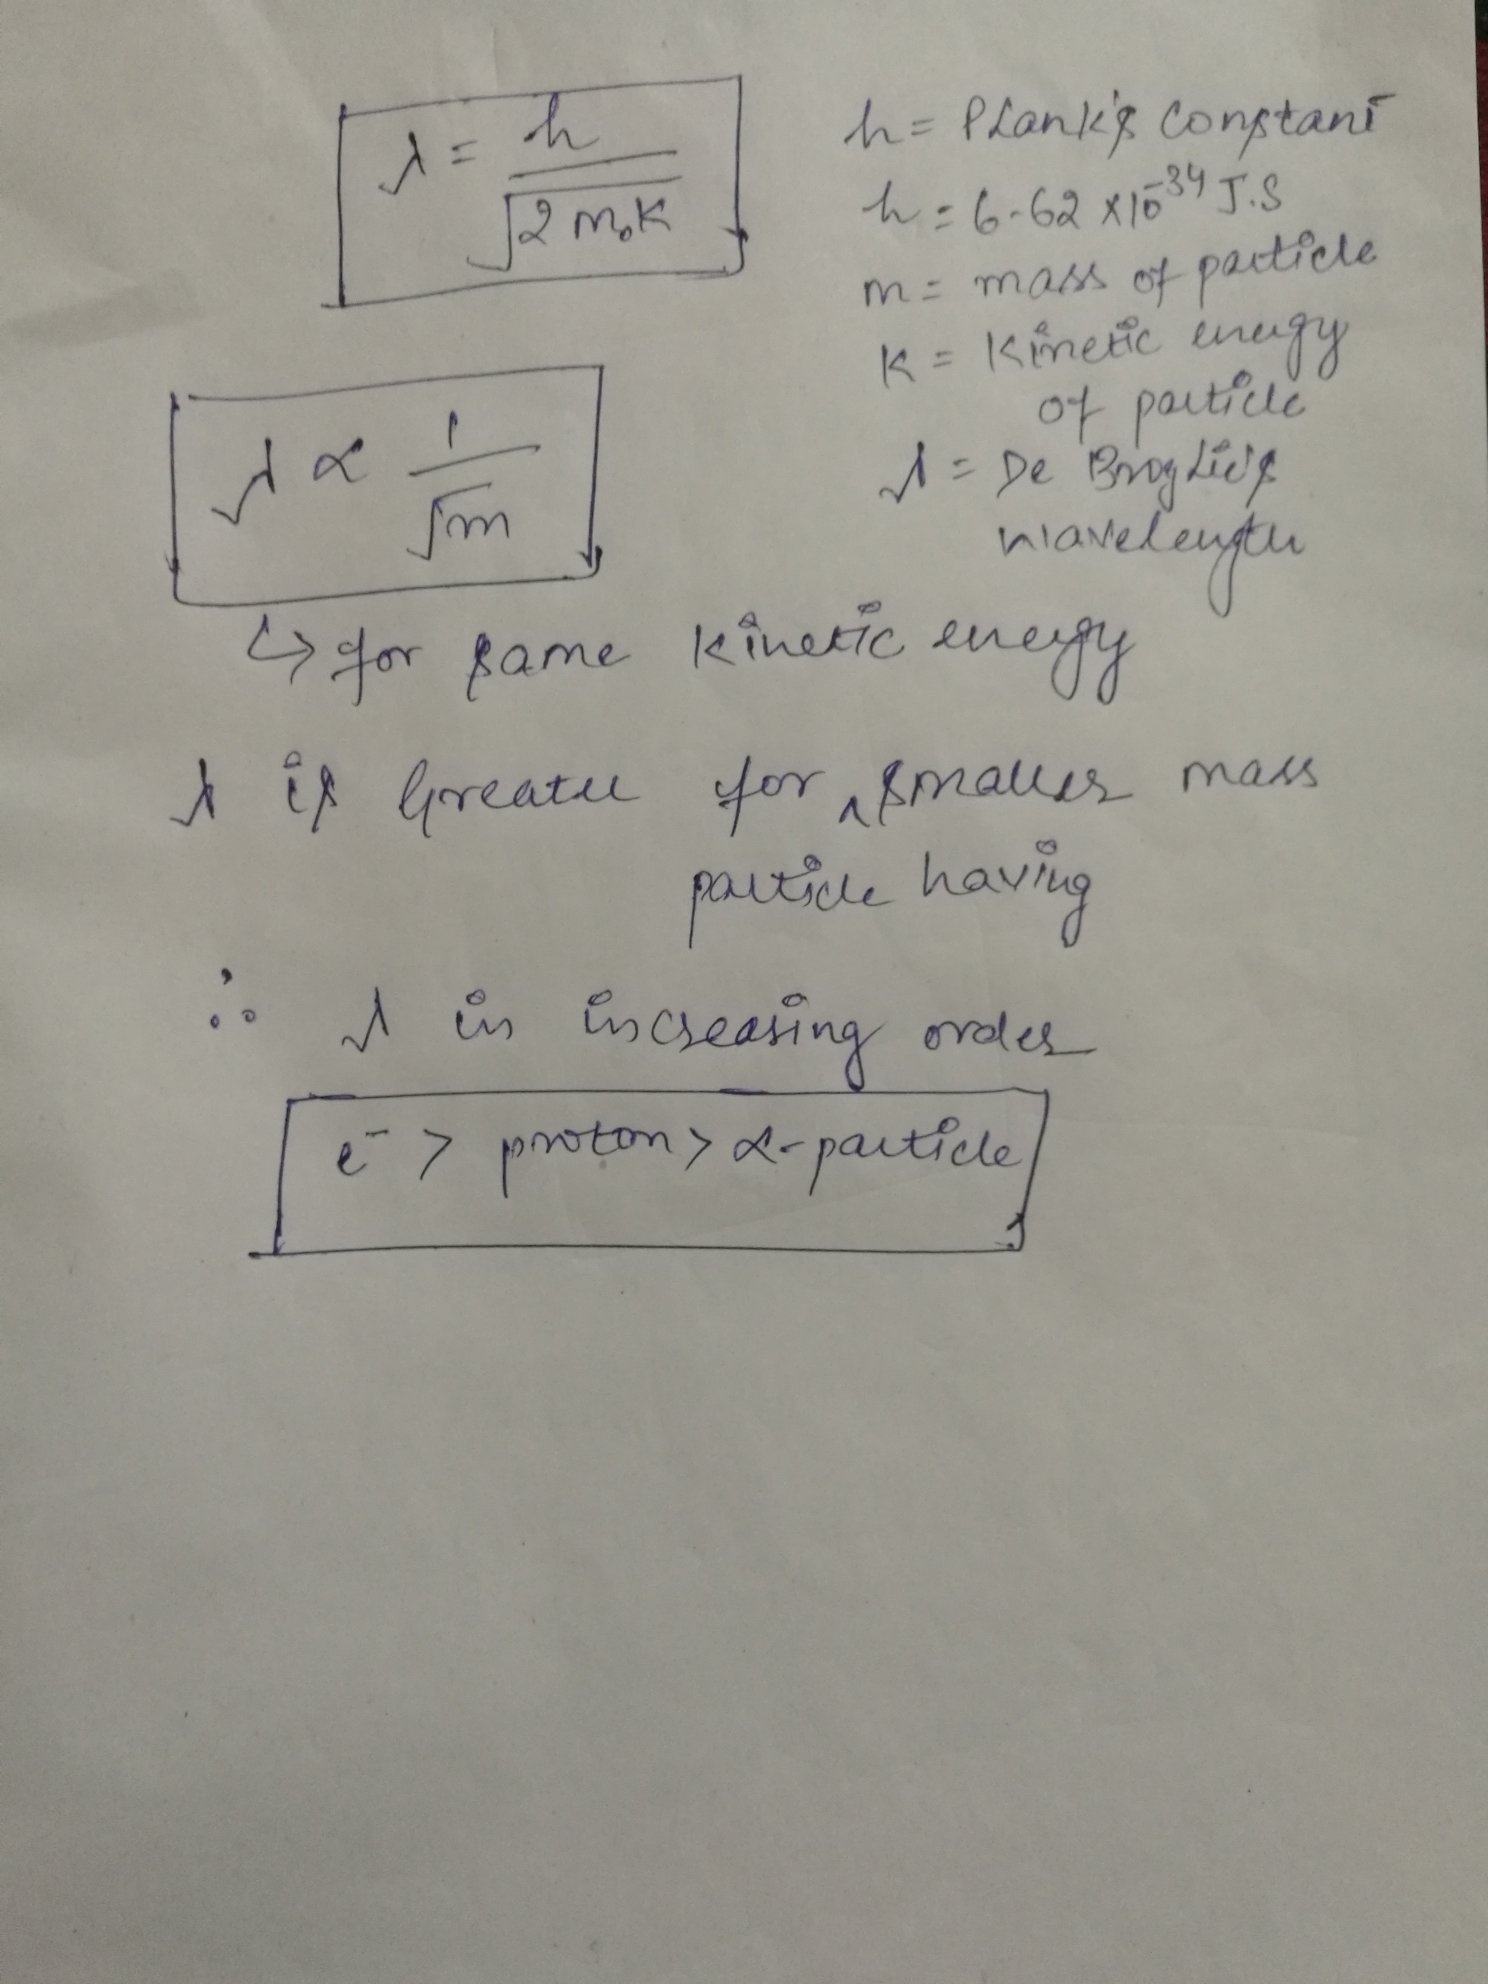 λ = h / √2 m₀K
h = Plank's Constant
h = 6.62 × 10⁻³⁴ J.S
m = mass of particle
K = Kinetic energy
of particle
λ = De Broglie's
wavelength
λ ∝ 1 / √m
↳ for same kinetic energy
λ is Greater for ‸ smaller mass
particle having
∴ λ in increasing order
e⁻ > proton > α-particle